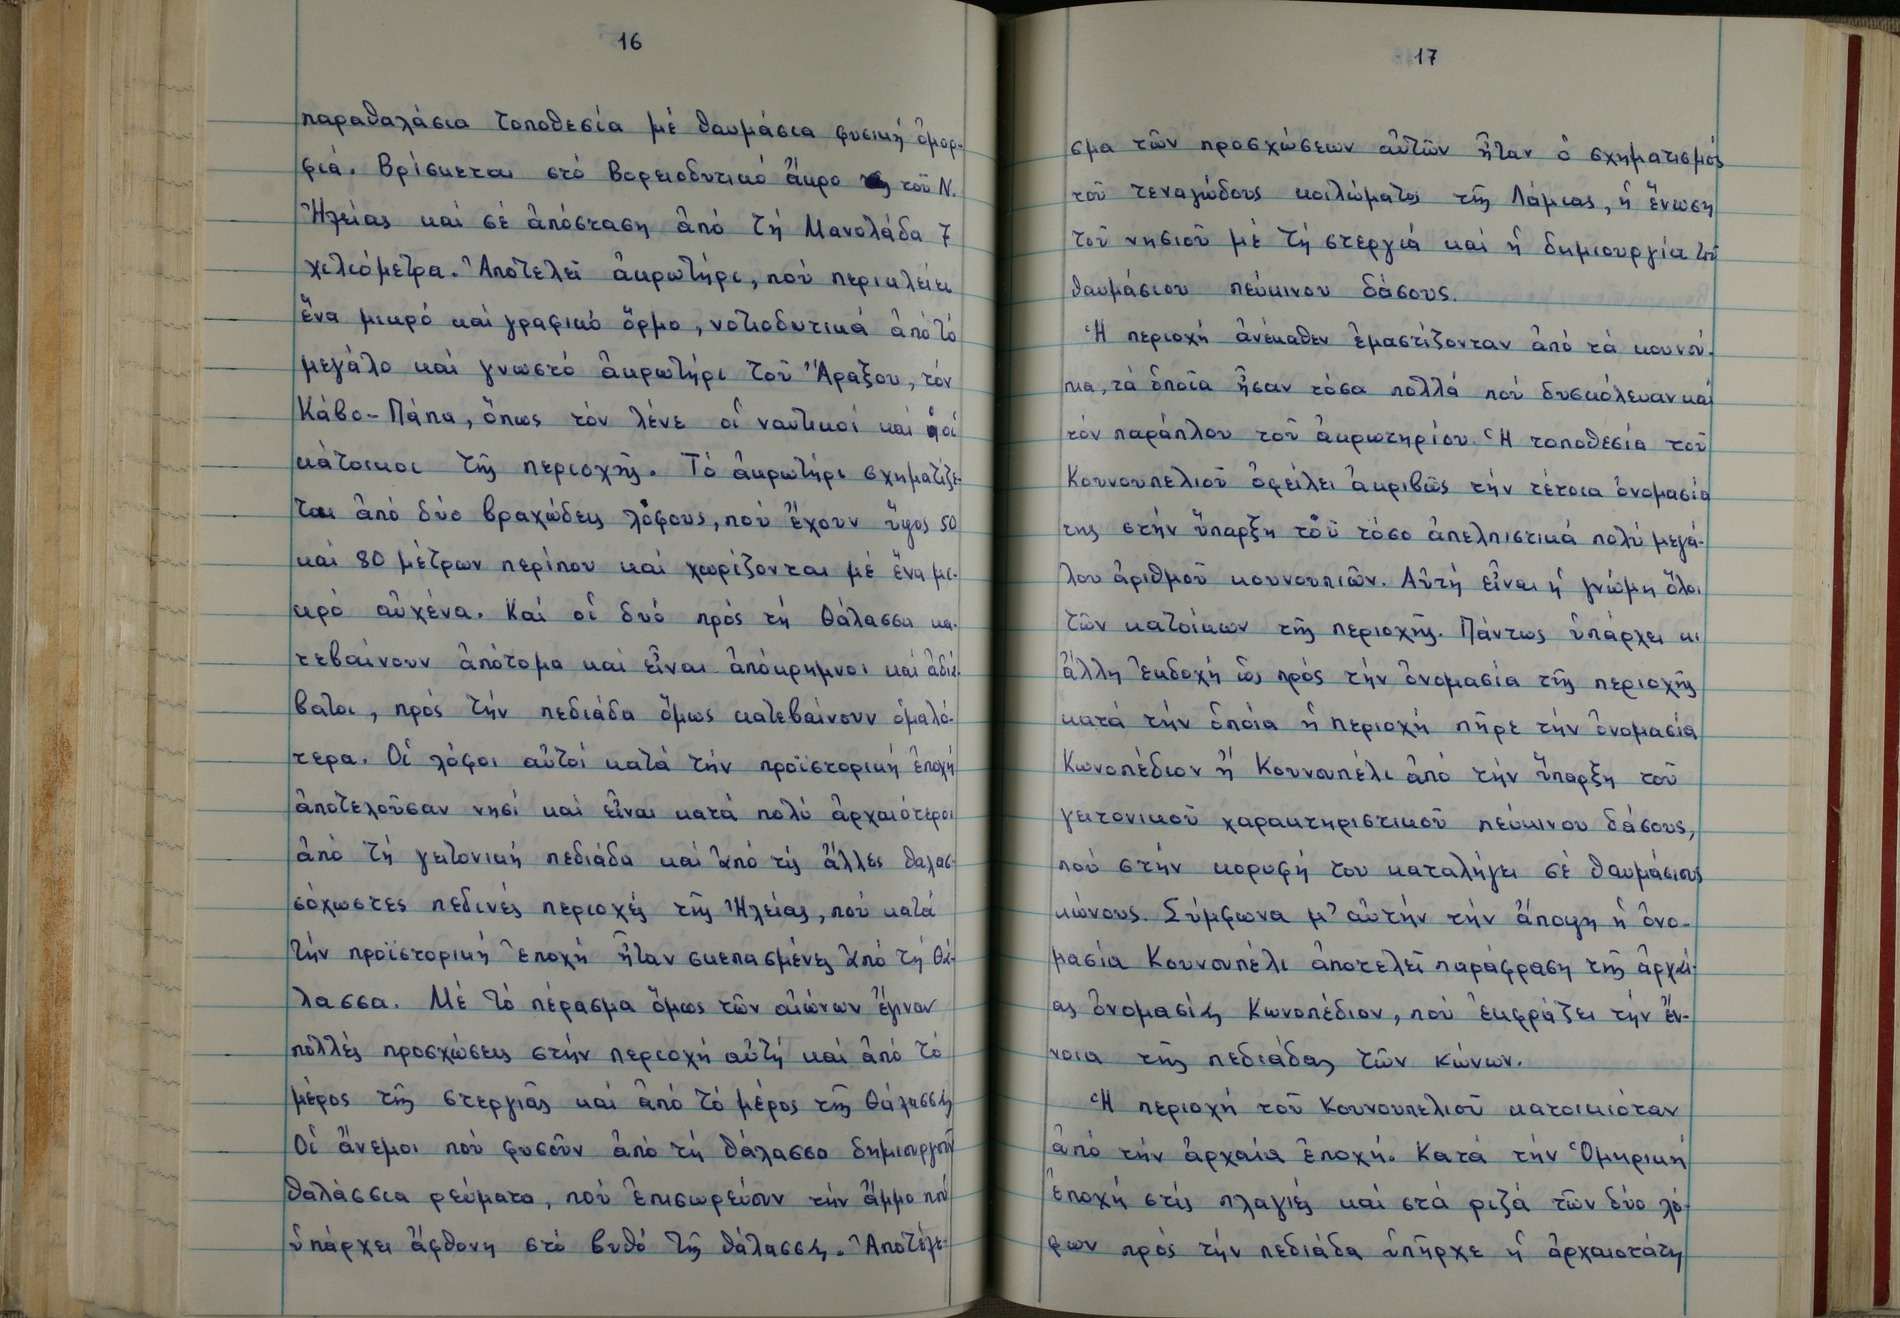 16
παραθαλάσια τοποθεσία μέ θαυμάσια φυσική ὀμορ-
φιά. Βρίσκεται στό Βορειοδυτικό ἄκρο τοῦ Ν.
Ἠλείας καί σέ ἀπόσταση ἀπό τή Μανολάδα 7
χιλιόμετρα. Ἀποτελεῖ ἀκρωτήρι, πού περικλείει
ἕνα μικρό καί γραφικό ὅρμο, νοτιοδυτικά ἀπό τό
μεγάλο καί γνωστό ἀκρωτήρι τοῦ Ἄραξου, τόν
Κάβο-Πάπα, ὅπως τόν λένε οἱ ναυτικοί καί οἱ
κάτοικοι τῆς περιοχῆς. Τό ἀκρωτήρι σχηματίζε-
ται ἀπό δύο βραχώδεις λόφους, πού ἔχουν ὕψος 50
καί 80 μέτρων περίπου καί χωρίζονται μέ ἕνα μι-
κρό αὐχένα. Καί οἱ δυό πρός τή θάλασσα κα-
τεβαίνουν ἀπότομα καί εἶναι ἀπόκρημνοι καί ἀδιά-
βατοι, πρός τήν πεδιάδα ὅμως κατεβαίνουν ὁμαλό-
τερα. Οἱ λόφοι αὐτοί κατά τήν προϊστορική ἐποχή
ἀποτελοῦσαν νησί καί εἶναι κατά πολύ ἀρχαιότεροι
ἀπό τή γειτονική πεδιάδα καί ἀπό τίς ἄλλες θαλασ-
σόχωστες πεδινές περιοχές τῆς Ἠλείας, πού κατά
τήν προϊστορική ἐποχή ἦταν σκεπασμένες ἀπό τή θά-
λασσα. Μέ τό πέρασμα ὅμως τῶν αἰώνων ἔγιναν
πολλές προσχώσεις στήν περιοχή αὐτή καί ἀπό τό
μέρος τῆς στεργιᾶς καί ἀπό τό μέρος τῆς θάλασσας
Οἱ ἄνεμοι πού φυσοῦν ἀπό τή θάλασσα δημιουργοῦν
θαλάσσια ρεύματα, πού ἐπισωρεύουν τήν ἄμμο πού
ὑπάρχει ἄφθονη στό βυθό τῆς θάλασσας. Ἀποτέλε-
17
σμα τῶν προσχώσεων αὐτῶν ἦταν ὁ σχηματισμός
τοῦ τεναγώδους κοιλώματος τῆς Λάμιας, ἡ ἕνωση
τοῦ νησιοῦ μέ τή στεργιά καί ἡ δημιουργία τοῦ
θαυμάσιου πεύκινου δάσους.
Ἡ περιοχή ἀνέκαθεν ἐμαστίζονταν ἀπό τά κουνού-
πια, τά ὁποῖα ἦσαν τόσα πολλά πού δυσκόλευαν καί
τόν παράπλου τοῦ ἀκρωτηρίου. Ἡ τοποθεσία τοῦ
Κουνουπελιοῦ ὀφείλει ἀκριβῶς τήν τέτοια ὀνομασία
της στήν ὕπαρξη τοῦ τόσο ἀπελπιστικά πολύ μεγά-
λου ἀριθμοῦ κουνουπιῶν. Αὐτή εἶναι ἡ γνώμη ὅλοι
τῶν κατοίκων τῆς περιοχῆς. Πάντως ὑπάρχει κι
ἄλλη ἐκδοχή ὡς πρός τήν ὀνομασία τῆς περιοχῆς
κατά τήν ὁποία ἡ περιοχή πῆρε τήν ὀνομασία
Κωνοπέδιον ἤ Κουνουπέλι ἀπό τήν ὕπαρξη τοῦ
γειτονικοῦ χαρακτηριστικοῦ πεύκινου δάσους,
πού στήν κορυφή του καταλήγει σέ θαυμάσιους
κώνους. Σύμφωνα μ' αὐτήν τήν ἄποψη ἡ ὀνο-
μασία Κουνουπέλι ἀποτελεῖ παράφραση τῆς ἀρχαί-
ας ὀνομασίας Κωνοπέδιον, πού ἐκφράζει τήν ἔν-
νοια τῆς πεδιάδας τῶν κώνων.
Ἡ περιοχή τοῦ Κουνουπελιοῦ κατοικιόταν
ἀπό τήν ἀρχαία ἐποχή. Κατά τήν Ὁμηρική
ἐποχή στίς πλαγιές καί στά ριζά τῶν δύο λό-
φων πρός τήν πεδιάδα ὑπῆρχε ἡ ἀρχαιοτάτη